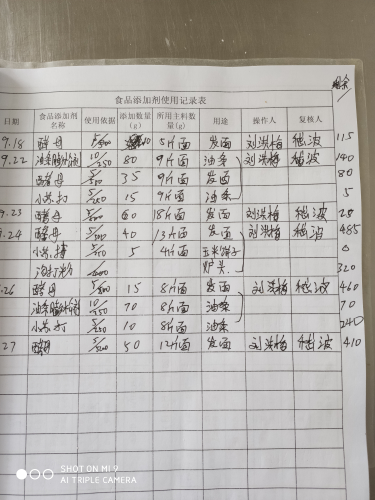 剩余
食品添加剂使用记录表
日期 食品添加剂名称 使用依据 添加数量(g) 所用主料数量(g) 用途 操作人 复核人
9.18 酵母 5/500 5斤面 发面 刘洪梅 115
9.22 油条膨松剂 10/250 80 9斤面 油条 刘洪梅 140
酵母 5/500 35 9斤面 发面 80
小苏打 5/500 15 9斤面 油条 5
9.23 酵母 5/500 60 18斤面 发面 刘洪梅 28
9.24 酵母 5/500 40 13斤面 发面 刘洪梅 485
小苏打 5/500 5 4斤面 玉米饼子 0
泡打粉 炉头 320
.26 酵母 5/500 15 8斤面 发面 刘洪梅 460
油条膨松剂 10/250 70 8斤面 油条 70
小苏打 5/500 10 8斤面 油条 240
27 酵母 5/500 50 12斤面 发面 刘洪梅 410
SHOT ON MI 9
AI TRIPLE CAMERA